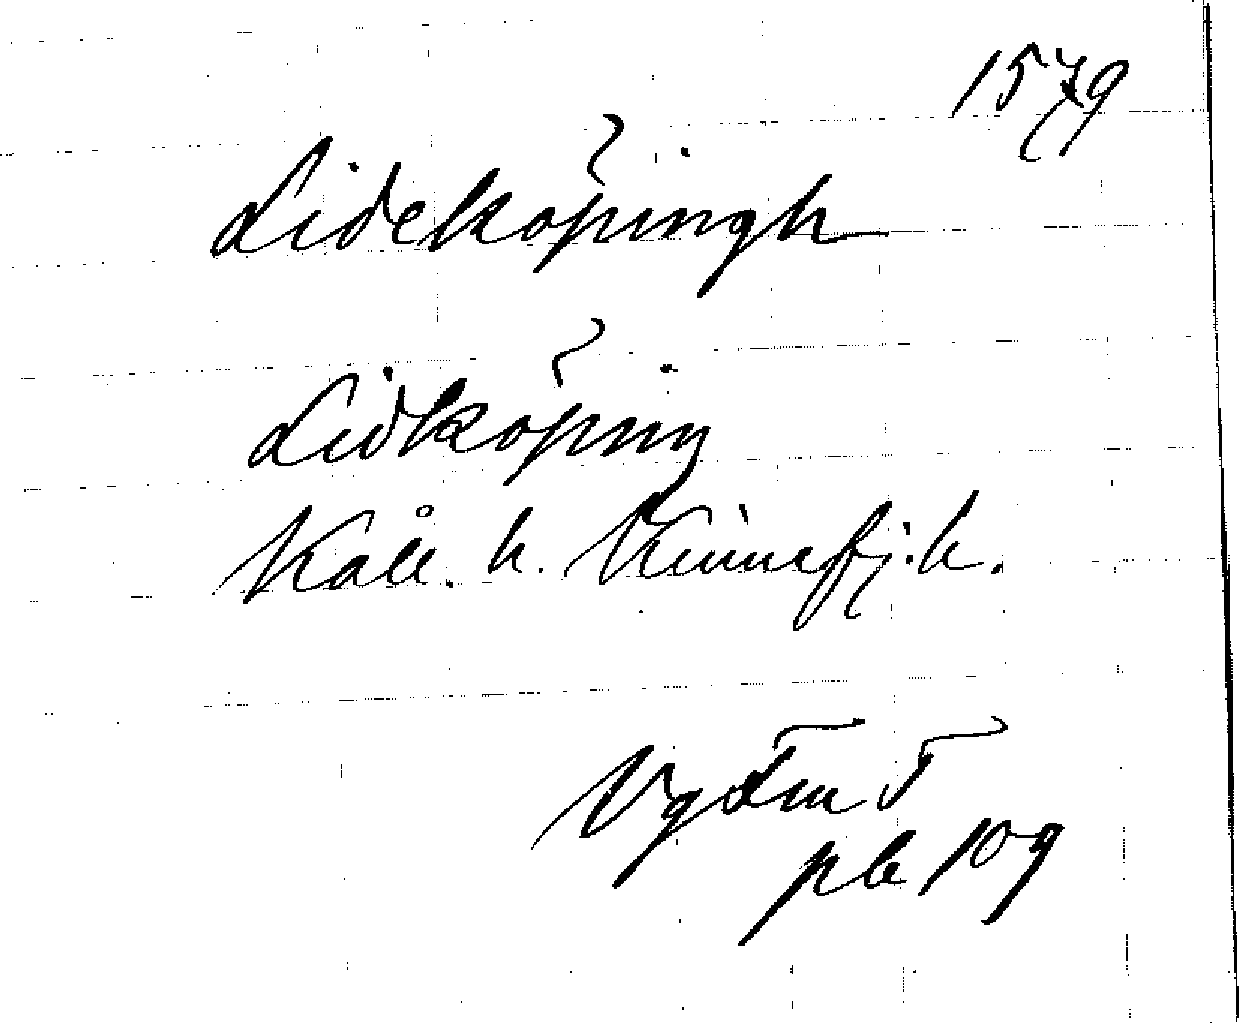 1579
Lideköpingh
Lidköping
Kåll. h. Kinnefj. h.
Vg Fm 5
pb 109